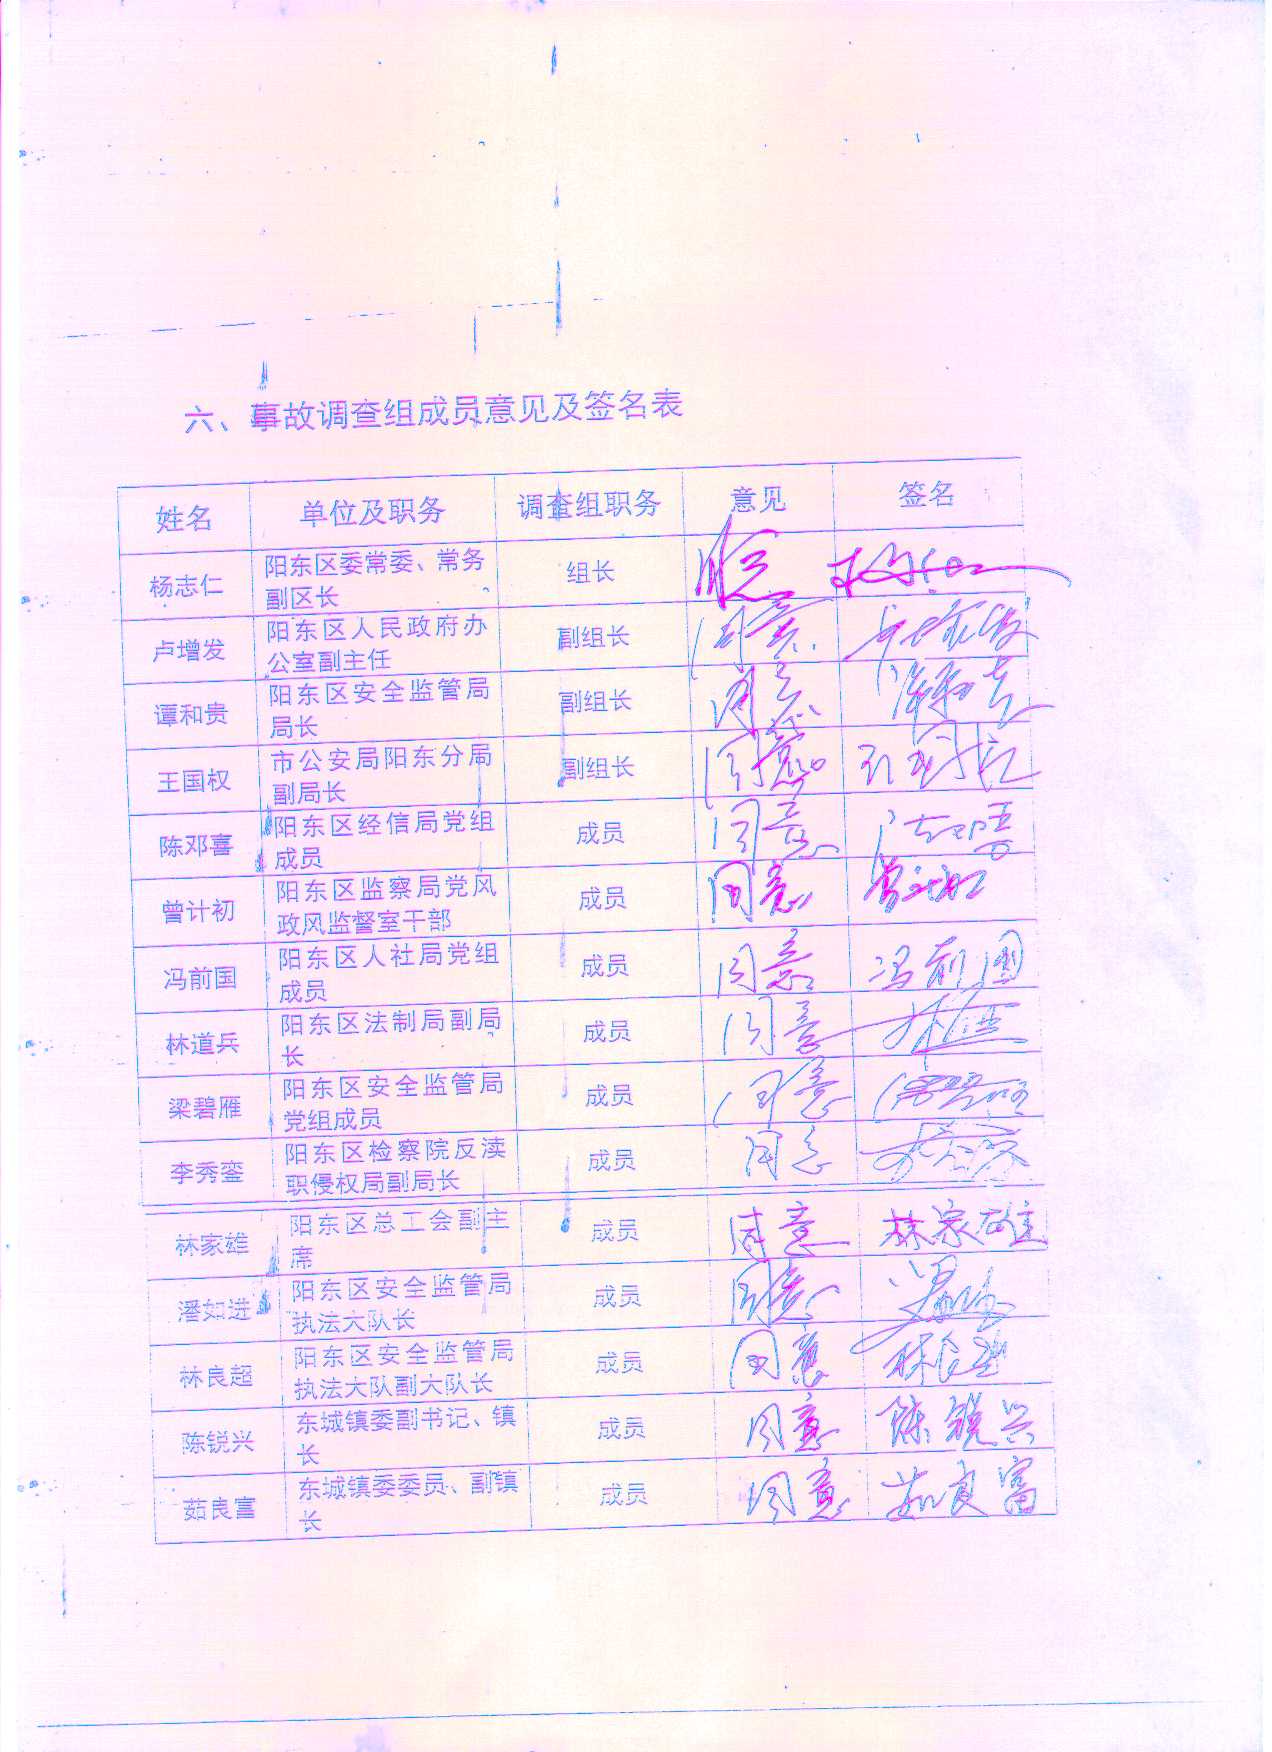 六、事故调查组成员意见及签名表
姓名 单位及职务 调查组职务 意见 签名
杨志仁 阳东区委常委、常务 组长 同意
副区长
卢增发 阳东区人民政府办 副组长 同意
公室副主任
谭和贵 阳东区安全监管局 副组长 同意
局长
王国权 市公安局阳东分局 副组长 同意
副局长
陈邓喜 阳东区经信局党组 成员 同意
成员
曾计初 阳东区监察局党风 成员 同意 曾计初
政风监督室干部
冯前国 阳东区人社局党组 成员 同意 冯前国
成员
林道兵 阳东区法制局副局 成员 同意
长
梁碧雁 阳东区安全监管局 成员 同意
党组成员
李秀銮 阳东区检察院反渎 成员 同意
职侵权局副局长
林家雄 阳东区总工会副主 成员 同意 林家雄
席
潘如进 阳东区安全监管局 成员 同意
执法大队长
林良超 阳东区安全监管局 成员 同意 林良超
执法大队副大队长
陈锐兴 东城镇委副书记、镇 成员 同意 陈锐兴
长
茹良富 东城镇委委员、副镇 成员 同意 茹良富
长